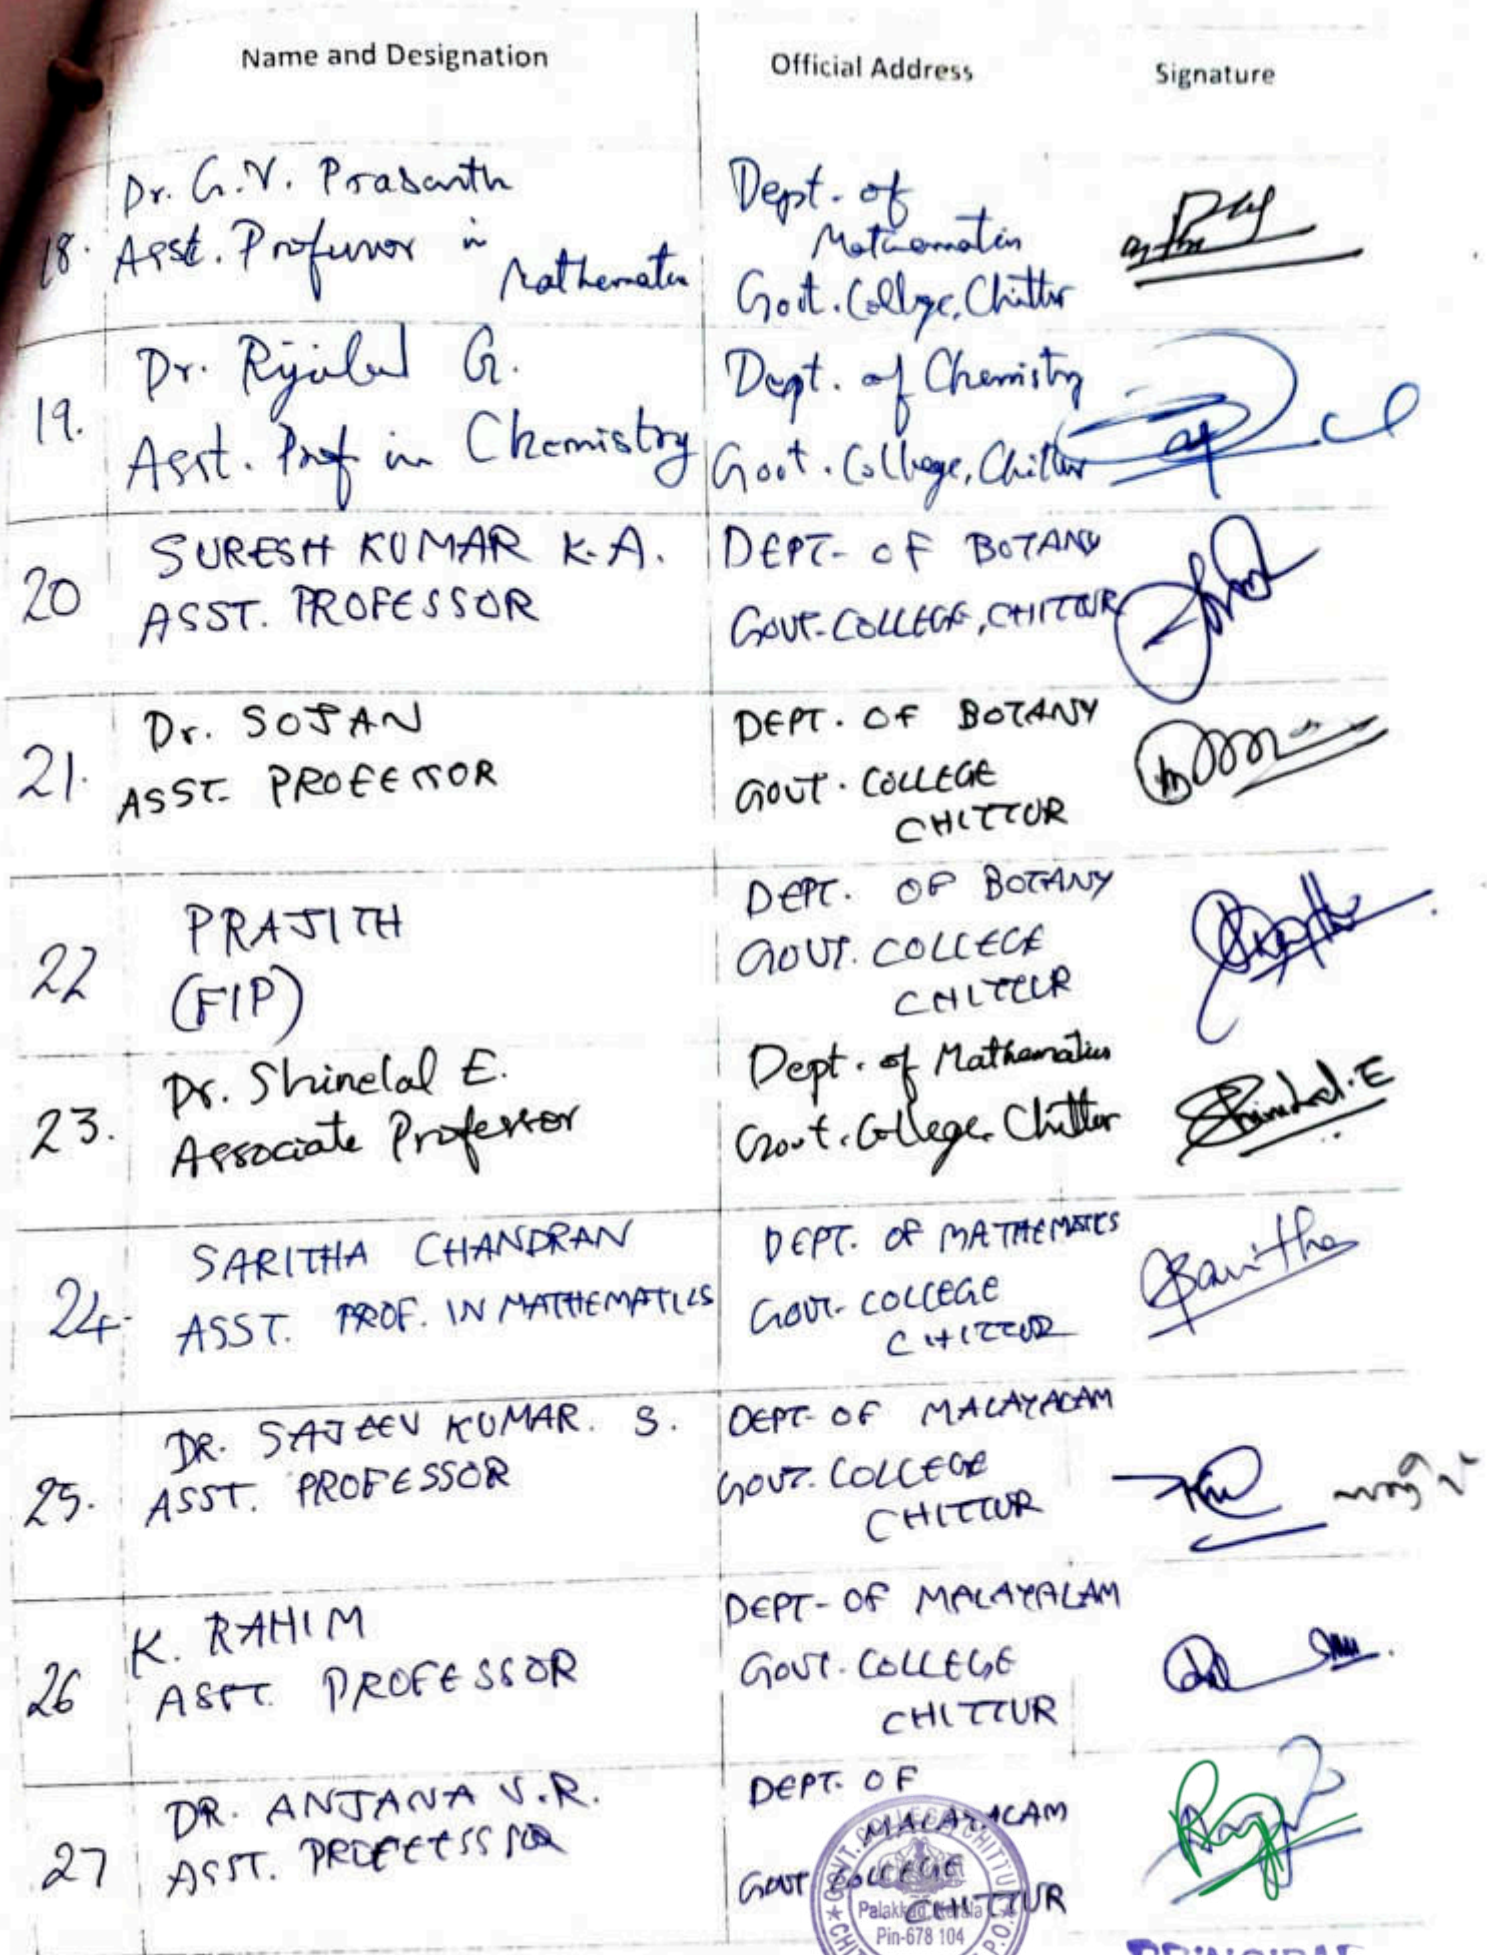 Name and Designation Official Address Signature
18. Dr. G.V. Prasanth
Asst. Professor in
Mathematics
Dept. of
Mathematics
Govt. College, Chittur
19. Dr. Rijulal G.
Asst. Prof in Chemistry
Dept. of Chemistry
Govt. College, Chittur
20 SURESH KUMAR K.A.
ASST. PROFESSOR
DEPT- OF BOTANY
GOVT-COLLEGE, CHITTUR
21. Dr. SOJAN
ASST. PROFESSOR
DEPT. OF BOTANY
GOVT. COLLEGE
CHITTUR
22 PRAJITH
(FIP)
DEPT. OF BOTANY
GOVT. COLLEGE
CHITTUR
23. Dr. Shinelal E.
Associate Professor
Dept. of Mathematics
Govt. College, Chittur
Shinelal.E
24. SARITHA CHANDRAN
ASST. PROF. IN MATHEMATICS
DEPT. OF MATHEMATICS
GOVT. COLLEGE
CHITTUR
Saritha
25. DR. SAJEEV KUMAR. S.
ASST. PROFESSOR
DEPT- OF MALAYALAM
GOVT. COLLEGE
CHITTUR
26 K. RAHIM
ASST. PROFESSOR
DEPT- OF MALAYALAM
GOVT. COLLEGE
CHITTUR
27 DR. ANJANA V.R.
ASST. PROFEESSSOR
DEPT. OF
MALAYALAM
GOVT COLLEGE
CHITTUR
GOVT. COLLEGE CHITTUR
Palakkad, Kerala
Pin-678 104
PRINCIPAL